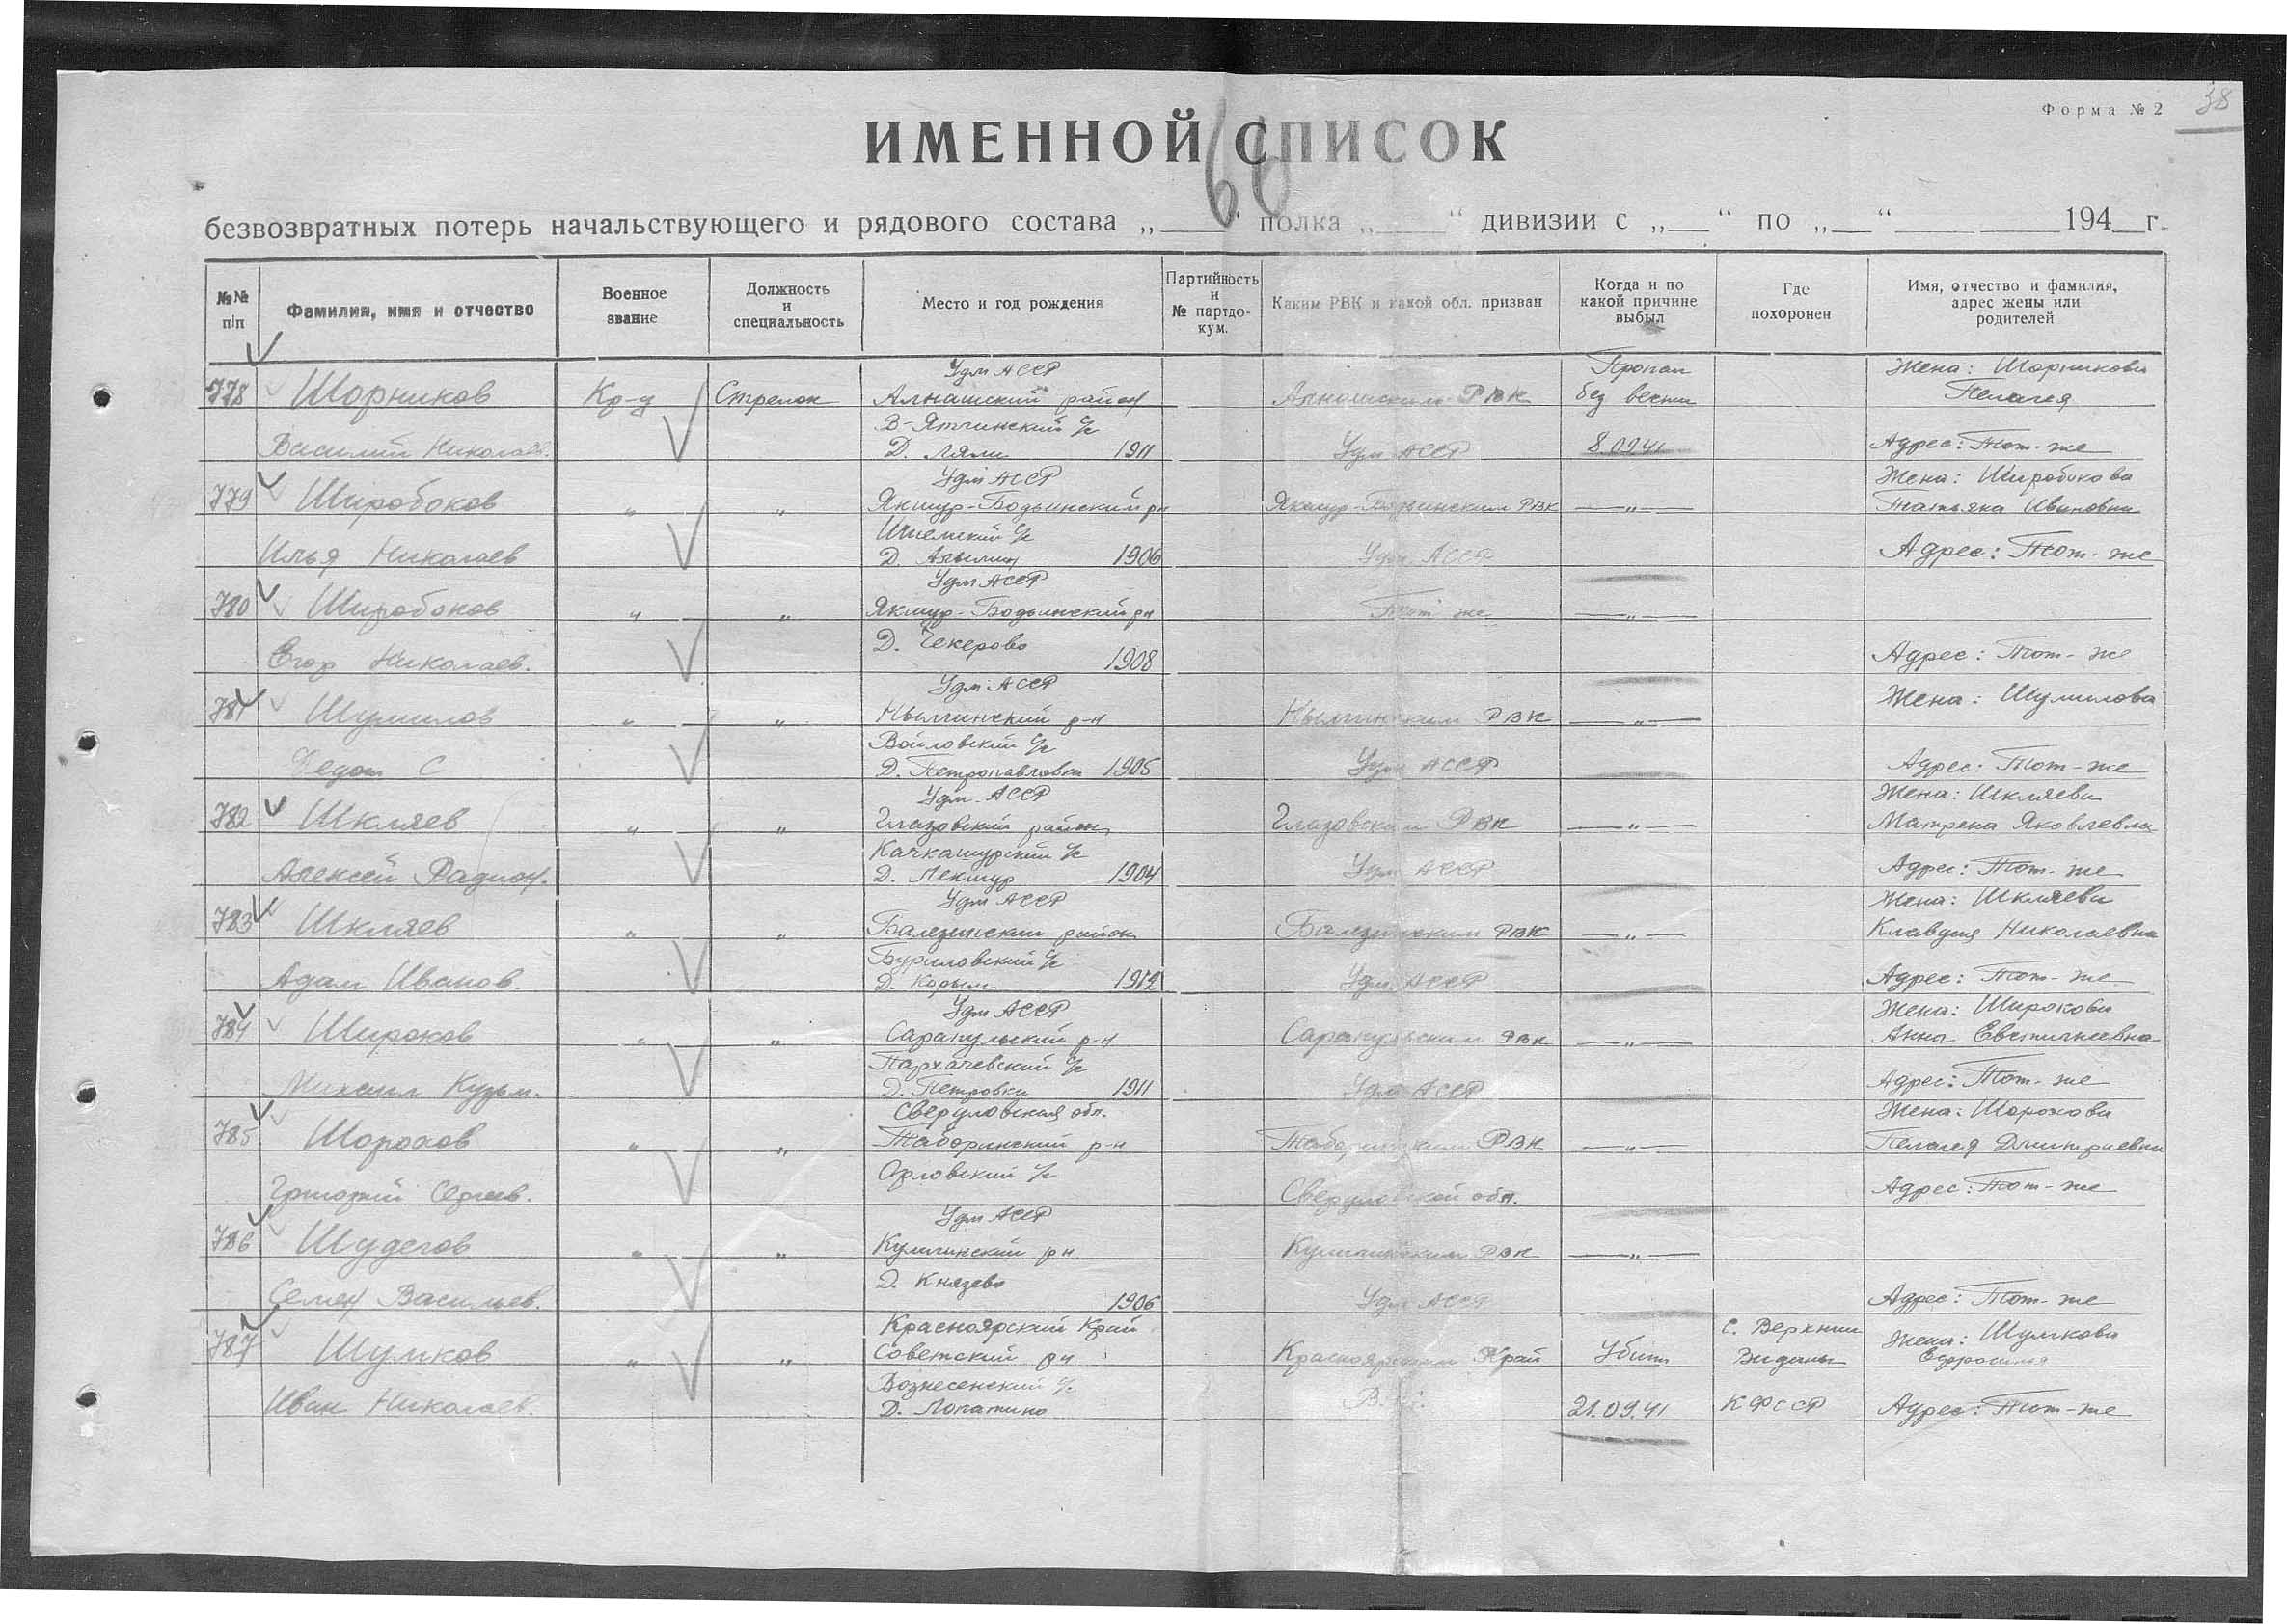 38
Форма № 2
ИМЕННОЙ СПИСОК
60
безвозвратных потерь начальствующего и рядового состава „ “ полка „ “ дивизии с „ “ по „ “ 194 г.
№№ п/п
Фамилия, имя и отчество
Военное звание
Должность и специальность
Место и год рождения
Партийность и № партдокум.
Каким РВК и какой обл. призван
Когда и по какой причине выбыл
Где похоронен
Имя, отчество и фамилия, адрес жены или родителей
Удм АССР Пропал Жена: Шорникова
778 Шорников Кр-ц Стрелок Алнашский район Алнашским РВК без вести Пелагея
В-Ятчинский с/с
Василий Николаев. Д. Ляли 1911 Удм АССР 8.09.41 Адрес: Тот-же
Удм АССР Жена: Широбокова
779 Широбоков „ „ Якшур-Бодьинский рн Якшур-Бодьинским РВК —„— Татьяна Ивановна
с/с
Илья Николаев Д. 1906 Удм АССР Адрес: Тот-же
Удм АССР
780 Широбоков „ „ Якшур-Бодьинский рн Тот же —„—
Д. Чекерово
Егор Николаев. 1908 Адрес: Тот-же
Удм АССР Жена: Шумилова
781 Шумилов „ „ Нылгинский р-н Нылгинским РВК —„—
Войловский с/с
Федот С Д. Петропавловка 1905 Удм АССР Адрес: Тот-же
Удм. АССР Жена: Шкляева
782 Шкляев „ „ Глазовский район Глазовским РВК —„— Матрена Яковлевна
Качкашурский с/с
Алексей Радион. Д. Лекшур 1904 Удм АССР Адрес: Тот-же
Удм АССР Жена: Шкляева
783 Шкляев „ „ Балезинский район Балезинским РВК —„— Клавдия Николаевна
с/с
Адам Иванов. Д. 1912 Удм АССР Адрес: Тот-же
Удм АССР Жена: Широкова
784 Широков „ „ Сарапульский р-н Сарапульским РВК —„— Анна Евстигнеевна
Пархачевский с/с
Михаил Кузьм. Д. Петровка 1911 Удм АССР Адрес: Тот-же
Свердловская обл. Жена: Шорохова
785 Шорохов „ „ Таборинский р-н Таборинским РВК —„— Пелагея Дмитриевна
Орловский с/с
Григорий Сергеев. Свердловской обл. Адрес: Тот-же
Удм АССР
786 Шудегов „ „ Кулигинский рн Кулигинским РВК —„—
Д. Князево
Семен Васильев. 1906 Удм АССР Адрес: Тот-же
Красноярский Край с. Верхний Жена: Шумкова
787 Шумков „ „ Советский рн Красноярским Край Убит Виданы Ефросинья
Вознесенский с/с
Иван Николаев. Д. Лопатино 21.09.41 КФССР Адрес: Тот-же